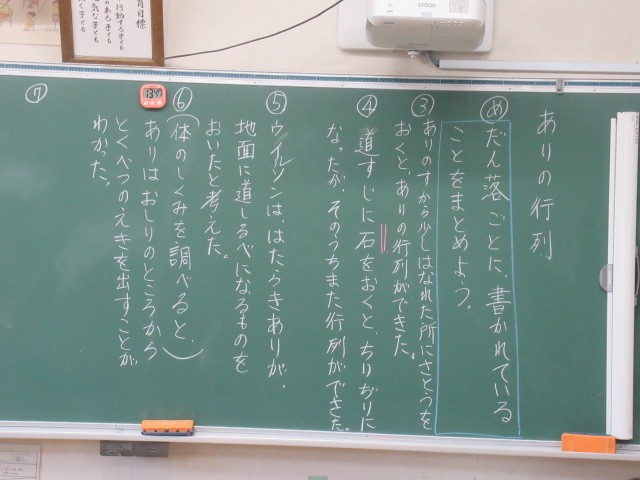 ありの行列
め
だん落ごとに、書かれている
ことをまとめよう。
③
ありのすから少しはなれた所にさとうを
おくと、ありの行列ができた。
④
道すじに石をおくと、ちりぢりに
なったが、そのうちまた行列ができた。
⑤
ウイルソンは、はたらきありが、
地面に道しるべになるものを
おいたと考えた。
⑥
(体のしくみを調べると、)
ありはおしりのところから
とくべつのえきを出すことが
わかった。
⑦
EPSON
目標
行動する子ども
のある子ども
気な子ども